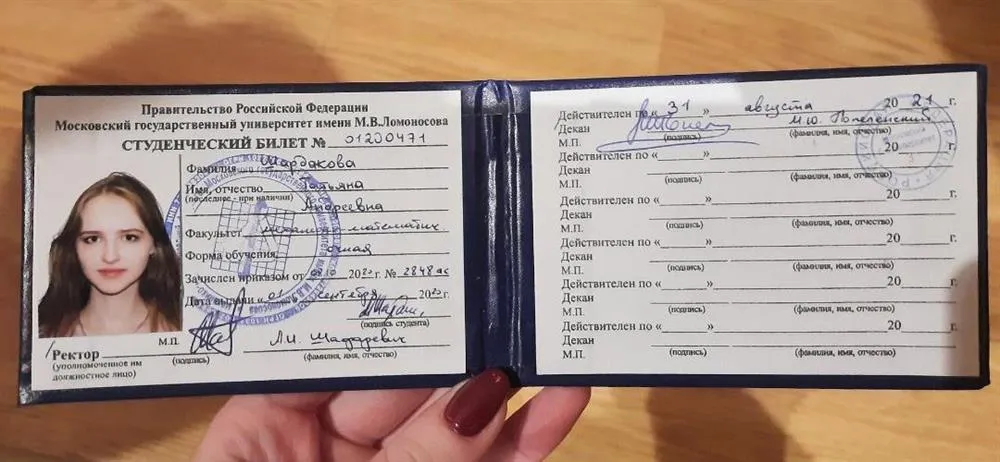 Правительство Российской Федерации
Московский государственный университет имени М.В.Ломоносова
СТУДЕНЧЕСКИЙ БИЛЕТ № 01200471
Фамилия Мардакова
Имя, отчество Татьяна
(последнее - при наличии) Андреевна
Факультет механико-математич.
Форма обучения очная
Зачислен приказом от 20 г. № 2848ас
Дата выдачи « 01 » сентября 20 г.
(подпись студента)
М.П.
Ректор
(подпись) (фамилия, имя, отчество)
(уполномоченное им
должностное лицо)
Действителен по « 31 » августа 20 21 г.
Декан
(подпись) (фамилия, имя, отчество)
М.П.
Действителен по « » 20 г.
Декан
М.П. (подпись) (фамилия, имя, отчество)
Действителен по « » 20 г.
Декан
М.П. (подпись) (фамилия, имя, отчество)
Действителен по « » 20 г.
Декан
М.П. (подпись) (фамилия, имя, отчество)
Действителен по « » 20 г.
Декан
М.П. (подпись) (фамилия, имя, отчество)
Действителен по « » 20 г.
Декан
М.П. (подпись) (фамилия, имя, отчество)